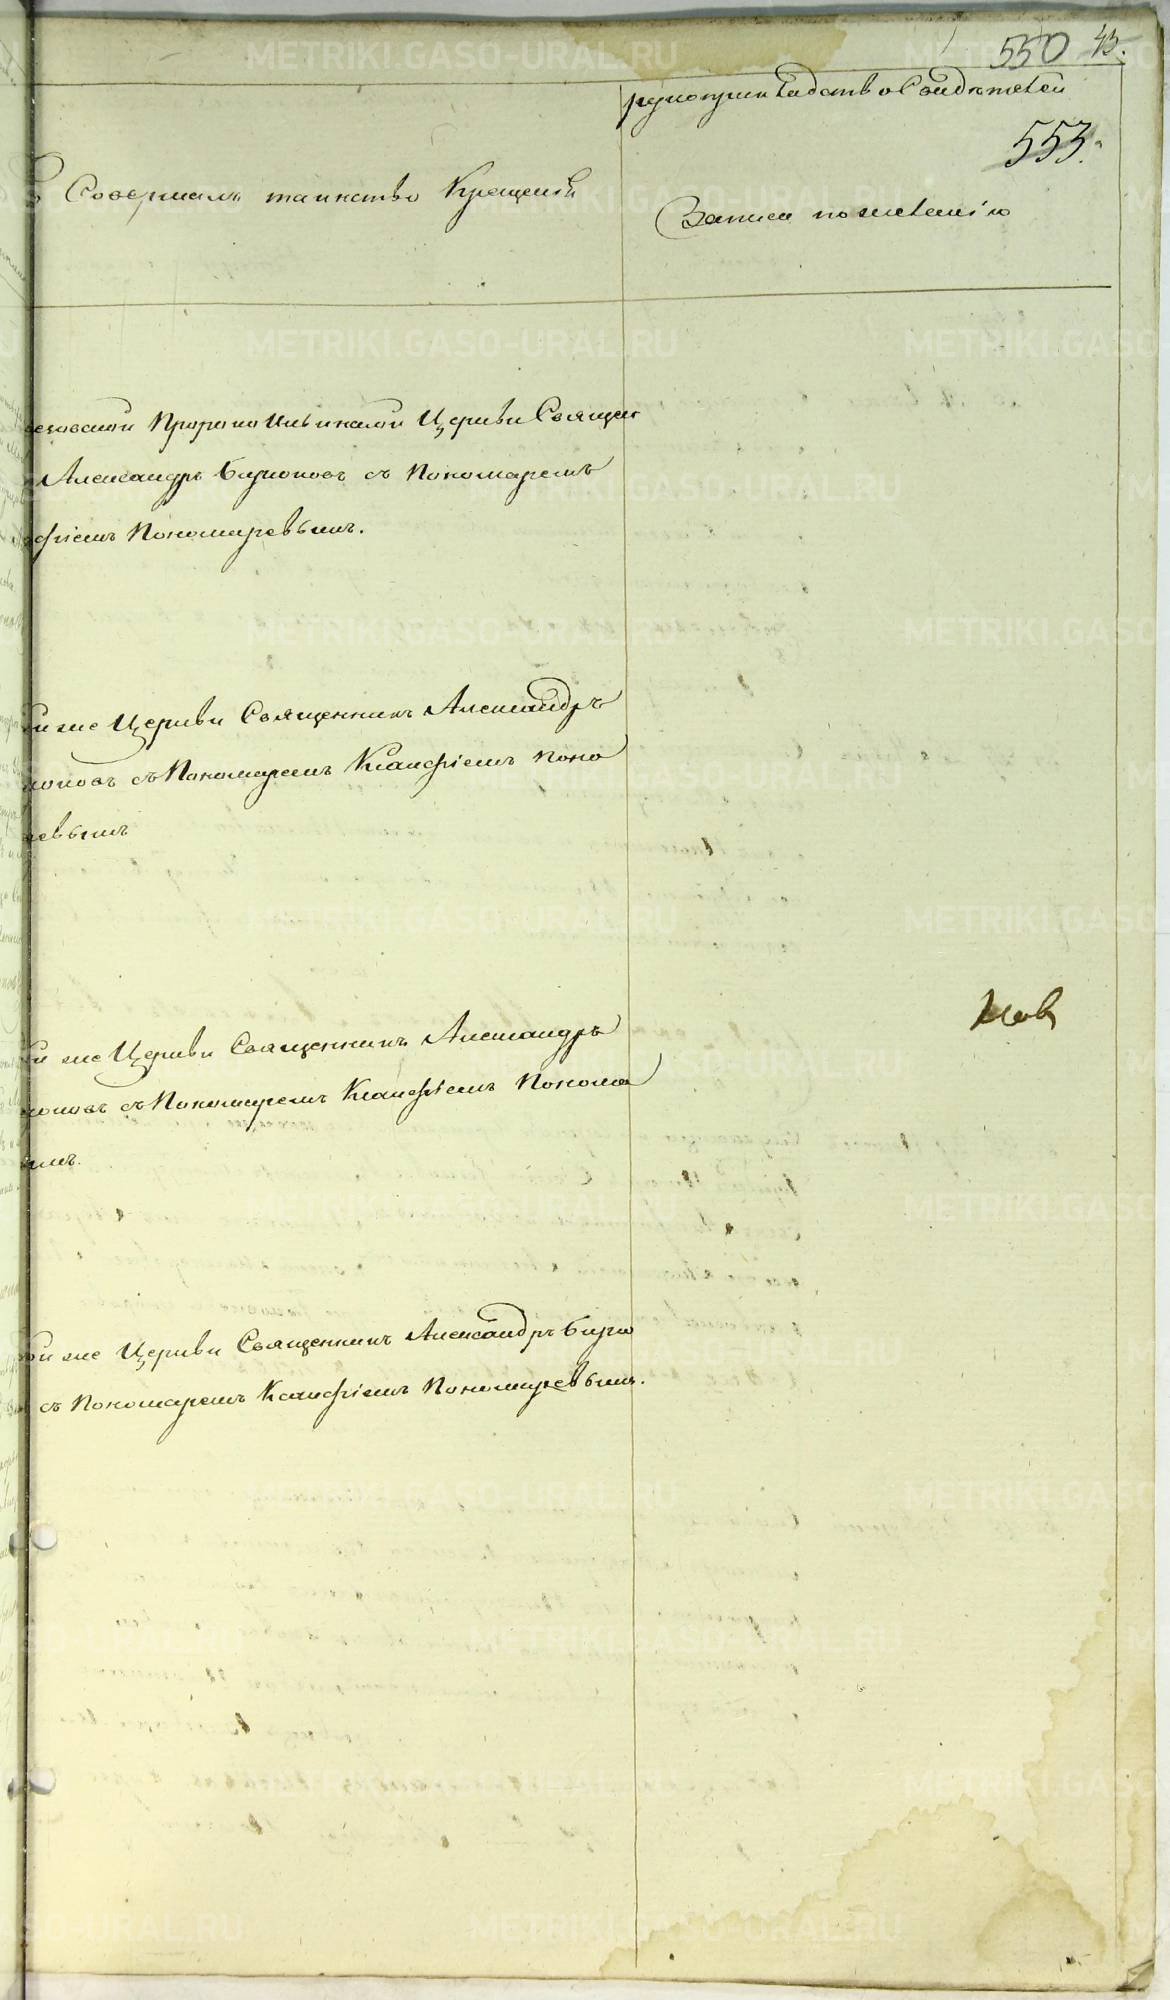 550 45.
рукоприкладство Свидѣтелей
553.
Совершалъ таинство Крещенія
Записи по желанію
Пророко Ильинской Церкви Священ
Александръ Бирюковъ съ Пономаремъ
фіемъ Пономаревымъ.
же Церкви Священникъ Александръ
юковъ съ Пономаремъ Ксанфіемъ Поно
ревымъ
же Церкви Священникъ Александръ
юковъ съ Пономаремъ Ксанфіемъ Понома
ымъ.
же Церкви Священникъ Александръ Бирю
съ Пономаремъ Ксанфіемъ Пономаревымъ.
METRIKI.GASO-URAL.RU